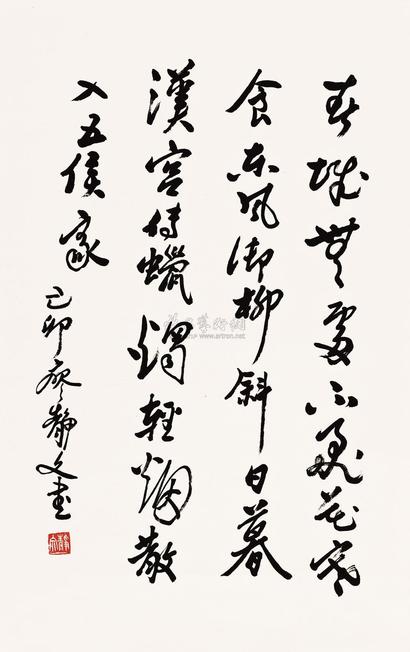 春城無處不飛花寒
食東風御柳斜日暮
漢宮傳蠟燭輕烟散
入五侯家
己卯廖靜文書
雅昌藝術網
http://www.artron.net